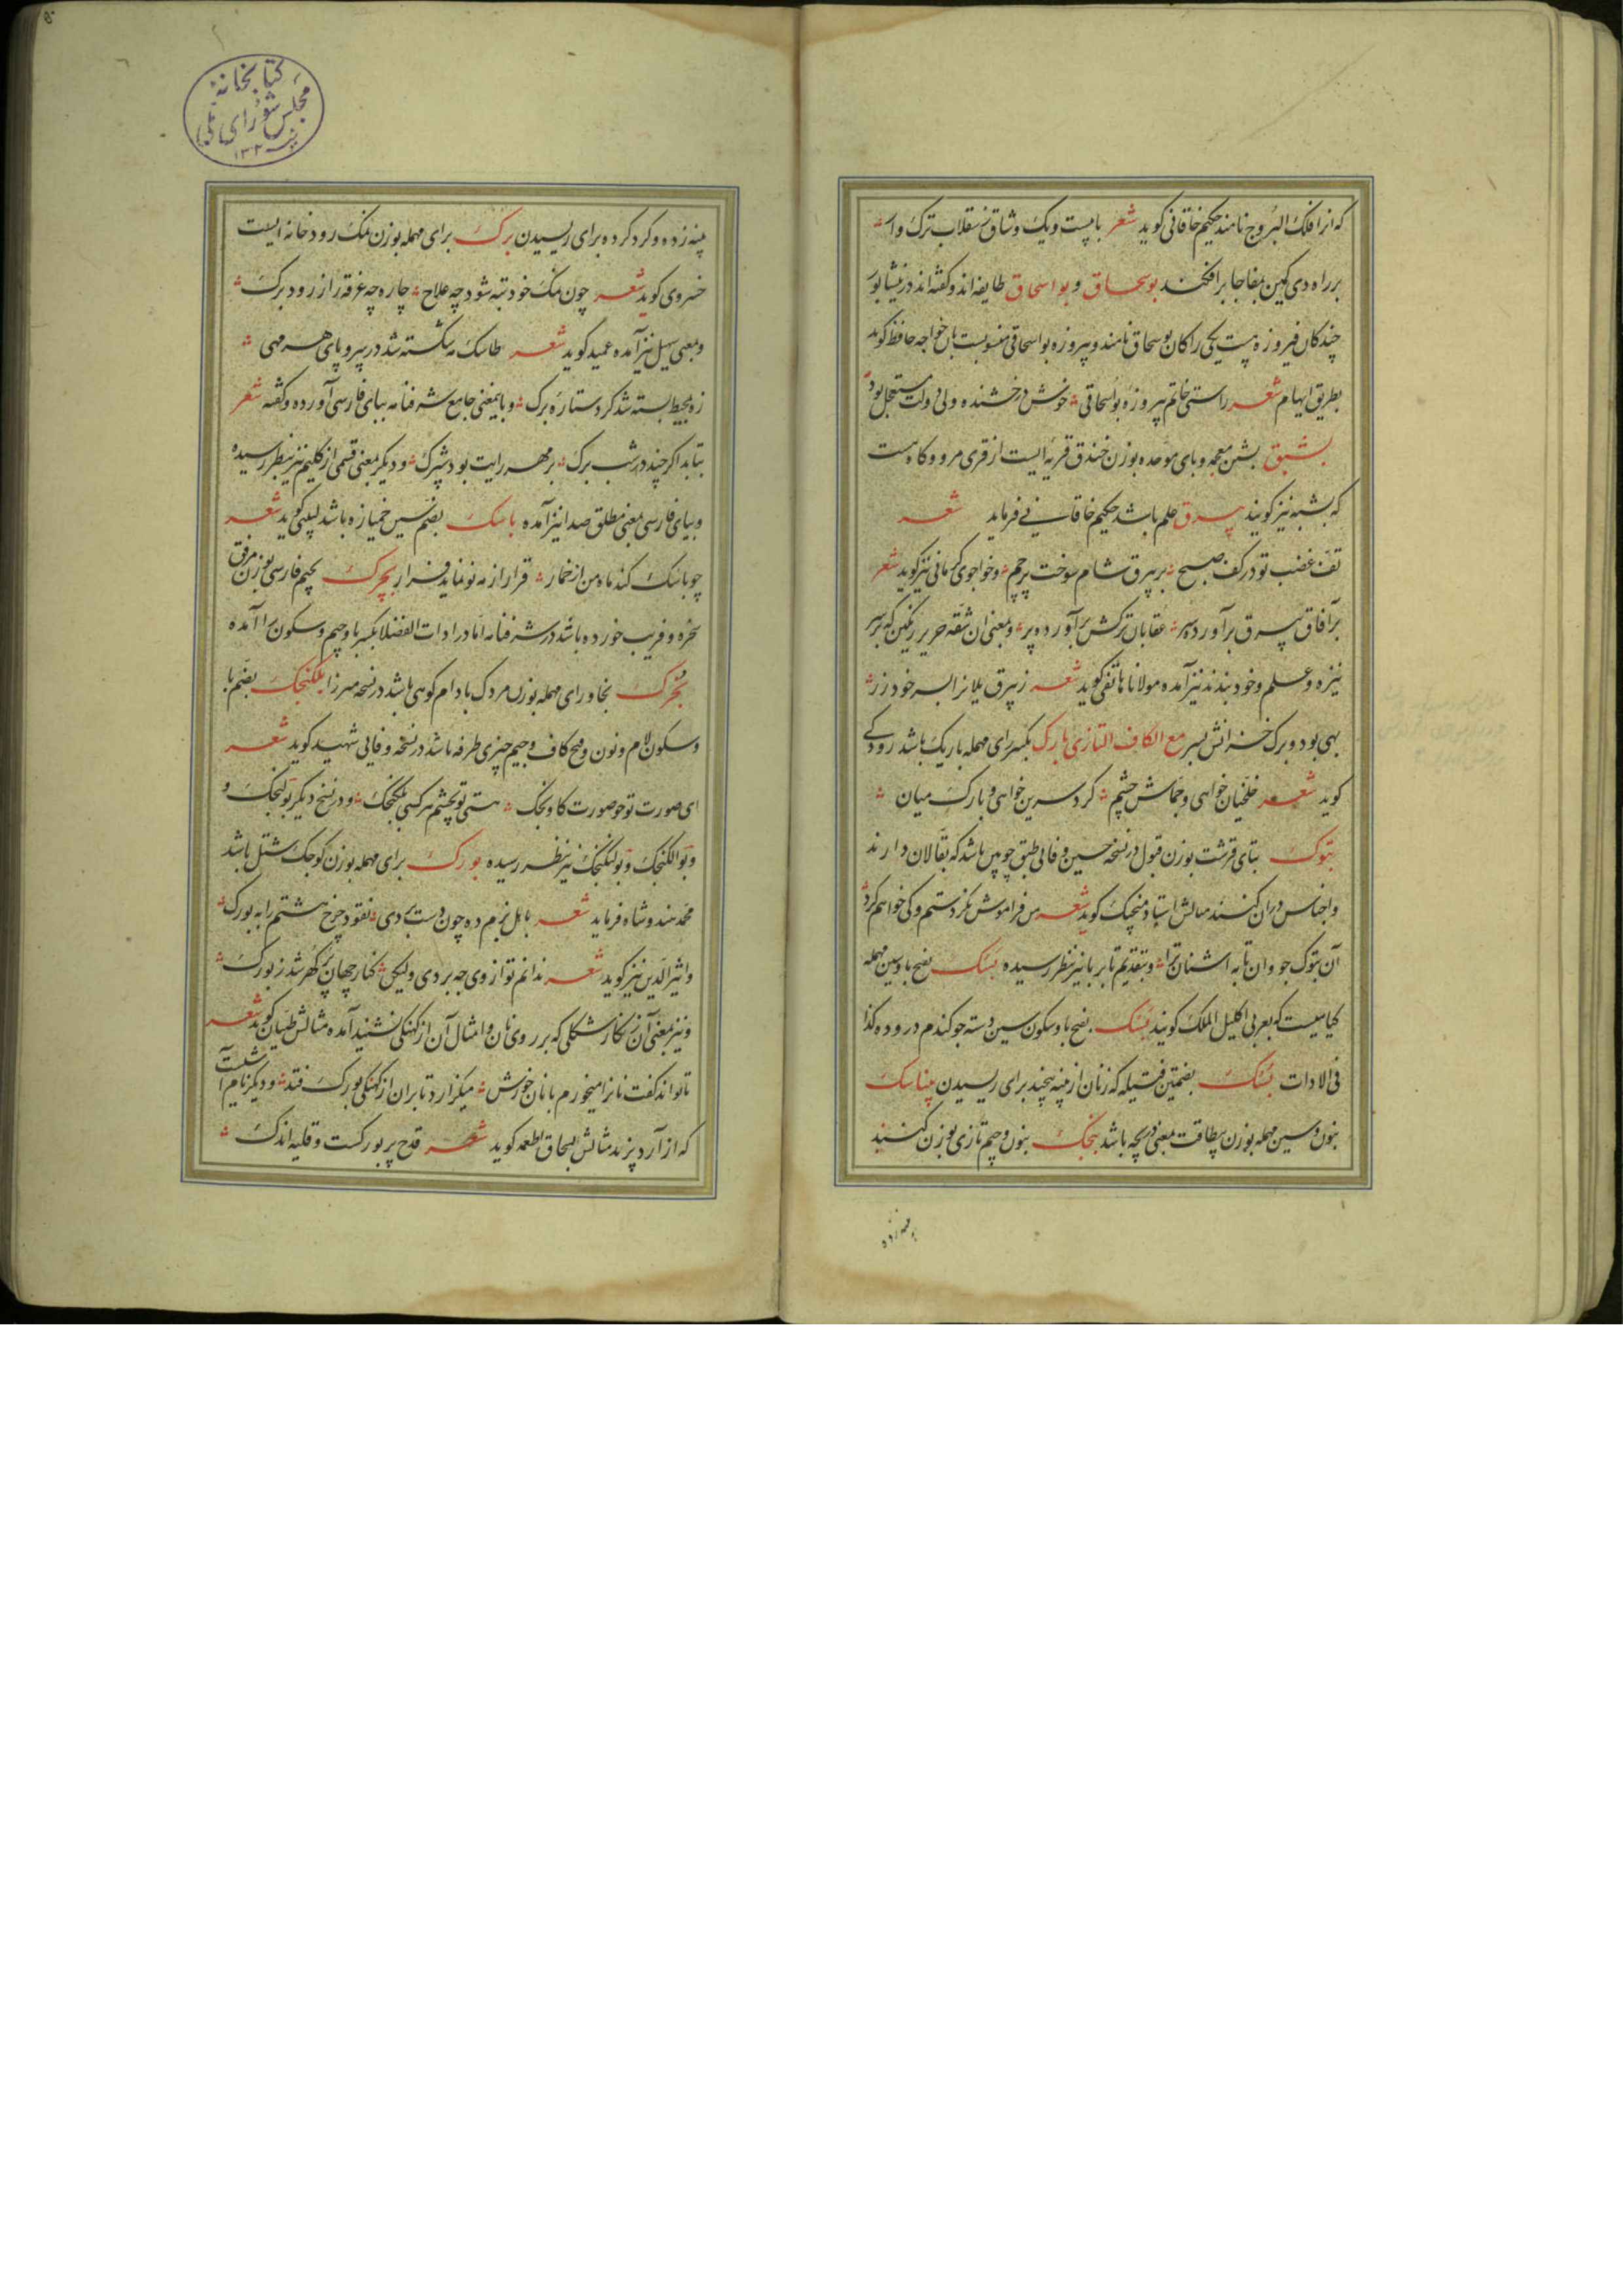 که انرا فلک البروج نامند حکیم خاقانی کوید شعر با بیست و یک وشاق ز سقلاب ترک وار
بر راه دی کمین بمفاجا بر افکند بوسحاق و بو اسحاق طایفه اند و کفته اند در نیشابور
چند کان فیروزه هست یکی را کان بوسحاق نامند و پیروزه بواسحاقی منسوبست بان خواجه حافظ کوید
بطریق ایهام شعر راستی خاتم پیروزه بواسحاقی خوش درخشنده ولی دولت مستعجل بود
بشبق بشین معجمه و بای موحده بوزن خندق قریه ایست از قری مرو و کاه هست
که بشبه نیز کویند بیرق علم باشد حکیم خاقانی فرماید شعر
تف غضب تو در کف صبح بر بیرق شام سوخت پرچم و خواجوی کرمانی نیز کوید شعر
بر آفاق بیرق بر آورده سر عقابان ترکش بر آورده پر و بمعنی ان شقه حریر رنکین که بر سر
نیزه و علم و خود بندند نیز آمده مولانا هاتفی کوید شعر ز بیرق یلانرا بسر خود زر
بهی بود و برک خزانش بسر مع الکاف التازی بارک بکسر رای مهمله باریک باشد رودکی
کوید شعر خلخیان خواهی و جماش چشم کرد سرین خواهی و بارک میان
بتوک بتای قرشت بوزن قبول در نسخه حسین وفائی طبق چوبین باشد که بقالان دارند
و اجناس دران کنند مثالش استاد منجیک کوید شعر من فراموش نکردستم و کی خواهم کرد
آن بتوک جو و ان تابه اشنان ترا و بتقدیم تا بر با نیز بنظر رسیده بسک بفتح با و سین مهمله
کیاهیست که بعربی اکلیل الملک کویند بسک بفتح با و سکون سین دسته جو کندم دروده کذا
فی الادات بسک بضمتین فتیله که زنان از پنبه پیچند برای ریسیدن بناسک
بنون و سین مهمله بوزن بطاقت بمعنی دریچه باشد بنجک بنون و جیم تازی بوزن کنند
پنبه زده
پنبه زده و کرد کرده برای ریسیدن برک برای مهمله بوزن نمک رودخانه ایست
خسروی کوید شعر چون نمک خود تبه شود چه علاج چاره چه غرقه را ز رود برک
و بمعنی سهیل نیز آمده عمید کوید شعر طاسک مه شکسته شد در پی و پای هر مهی
زه بمحیط بسته شد کرد ستاره برک و باینمعنی جامع شرفنامه ببای فارسی آورده و کفته شعر
بتابد اکر چند در شب برک بر مهر رایت بود شبپرک و دیکر بمعنی قسمی از کلیم نیز بنظر رسیده
و ببای فارسی بمعنی مطلق صدا نیز آمده باسک بضم سین خمیازه باشد لبیبی کوید شعر
چو باسک کند ماه من از خمار قرار از مه نو نماید فرار بچرک بجیم فارسی بوزن مزق
سخره و فریب خورده باشد در شرفنامه اما در ادات الفضلا بکسر با و جیم و سکون را آمده
بخرک بخا و رای مهمله بوزن مردک بادام کوهی باشد در نسخه میرزا بلکنجک بضم با
و سکون لام و نون و فتح کاف و جیم چیزی طرفه باشد در نسخه وفایی شهید کوید شعر
ای صورت تو چو صورت کاونجک هستی تو بچشم هر کسی بلکنجک و در نسخ دیکر بولنجک و
و بوالکنجک و بولکنجک نیز بنظر رسیده بورک برای مهمله بوزن کوچک شتل باشد
محمد هندوشاه فرماید شعر بابل بزم ده چون دست بردی نقود چرخ هشتم را به بورک
و اثیر الدین نیز کوید شعر ندانم تو از وی چه بردی ولیکن کنار جهان پر کهر شد ز بورک
و نیز بمعنی آن زنکار شکلی که بر روی نان و امثال آن از کهنکی نشیند آمده مثالش طیبان کوید شعر
تا تو اند کفت نانرا میخورم با نان خورش میکزارد تا بران از کهنکی بورک فتد و دیکر نام آشیست
که از آرد پزند مثالش بسحاق اطعمه کوید شعر قدح پر بورکست و قلیه اندک
کتابخانه مجلس شورای ملی